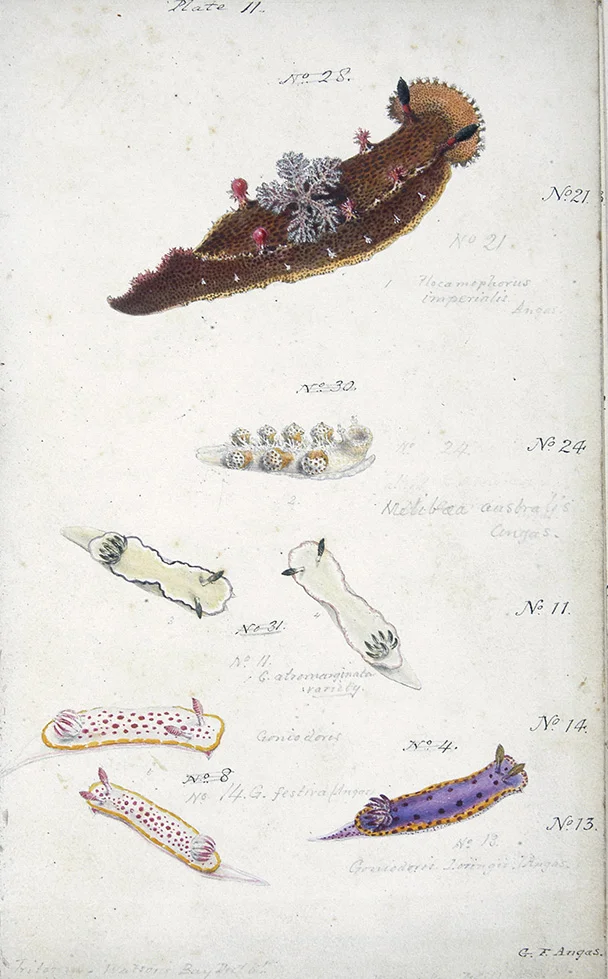 Plate 11.
No 28.
No 21.
No 21.
Plocamophorus
imperialis
Angas
1
No 30.
No 24
No 24
2
Melibaea australis
Angas.
3
4
No 11.
No 31.
No 11.
C. atromarginata
variety.
No 14.
Goniodoris
No 4.
No 8
No 14. G. festiva (Angas
No 13.
No 13.
Goniodoris Loringii (Angas
G. F. Angas.
Watsons Bay